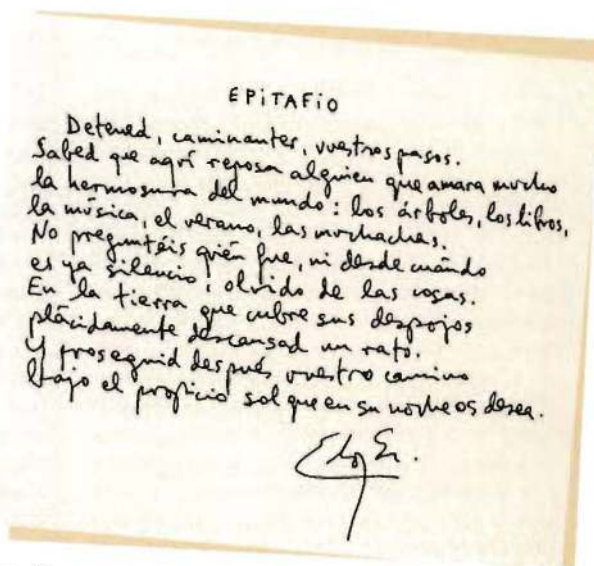 EPiTAFiO
Detened, caminantes, vuestros pasos.
Sabed que aquí reposa alguien que amara mucho
la hermosura del mundo: los árboles, los libros,
la música, el verano, las muchachas.
No preguntéis quién fue, ni desde cuándo
es ya silencio, olvido de las cosas.
En la tierra que cubre sus despojos
plácidamente descansad un rato.
Y proseguid después vuestro camino
bajo el propicio sol que en su noche os desea.